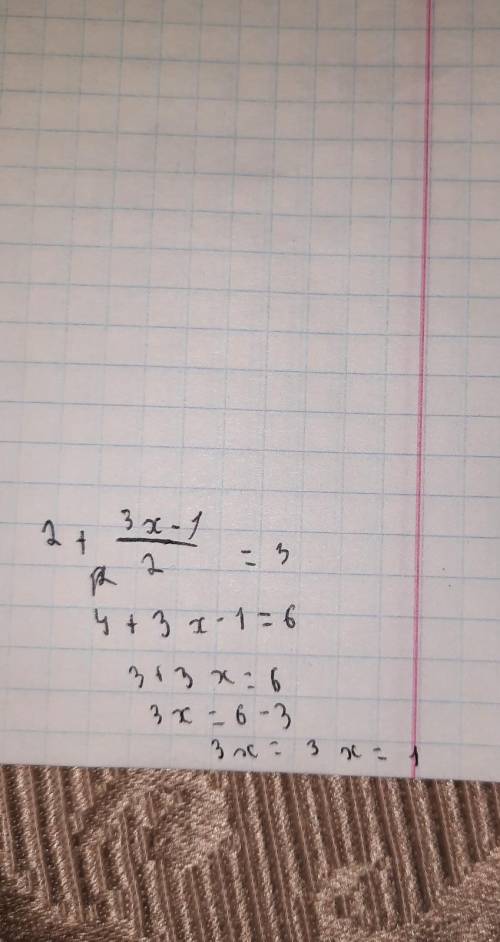 2 + (3x - 1)/2 = 3
4 + 3x - 1 = 6
3 + 3x = 6
3x = 6 - 3
3x = 3 x = 1